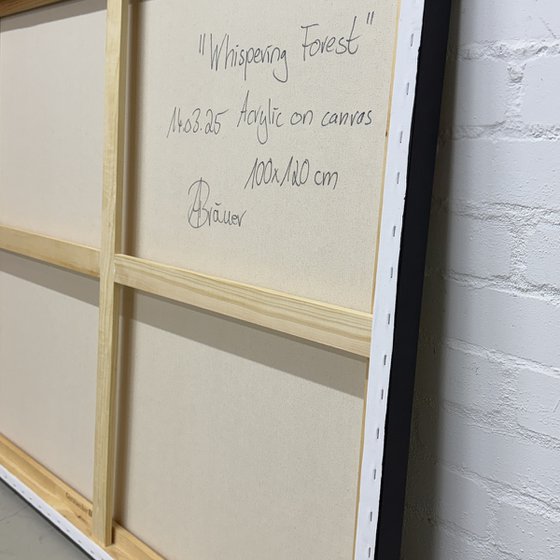 "Whispering Forest"
14.03.25 Acrylic on canvas
100x120 cm
ABräuer